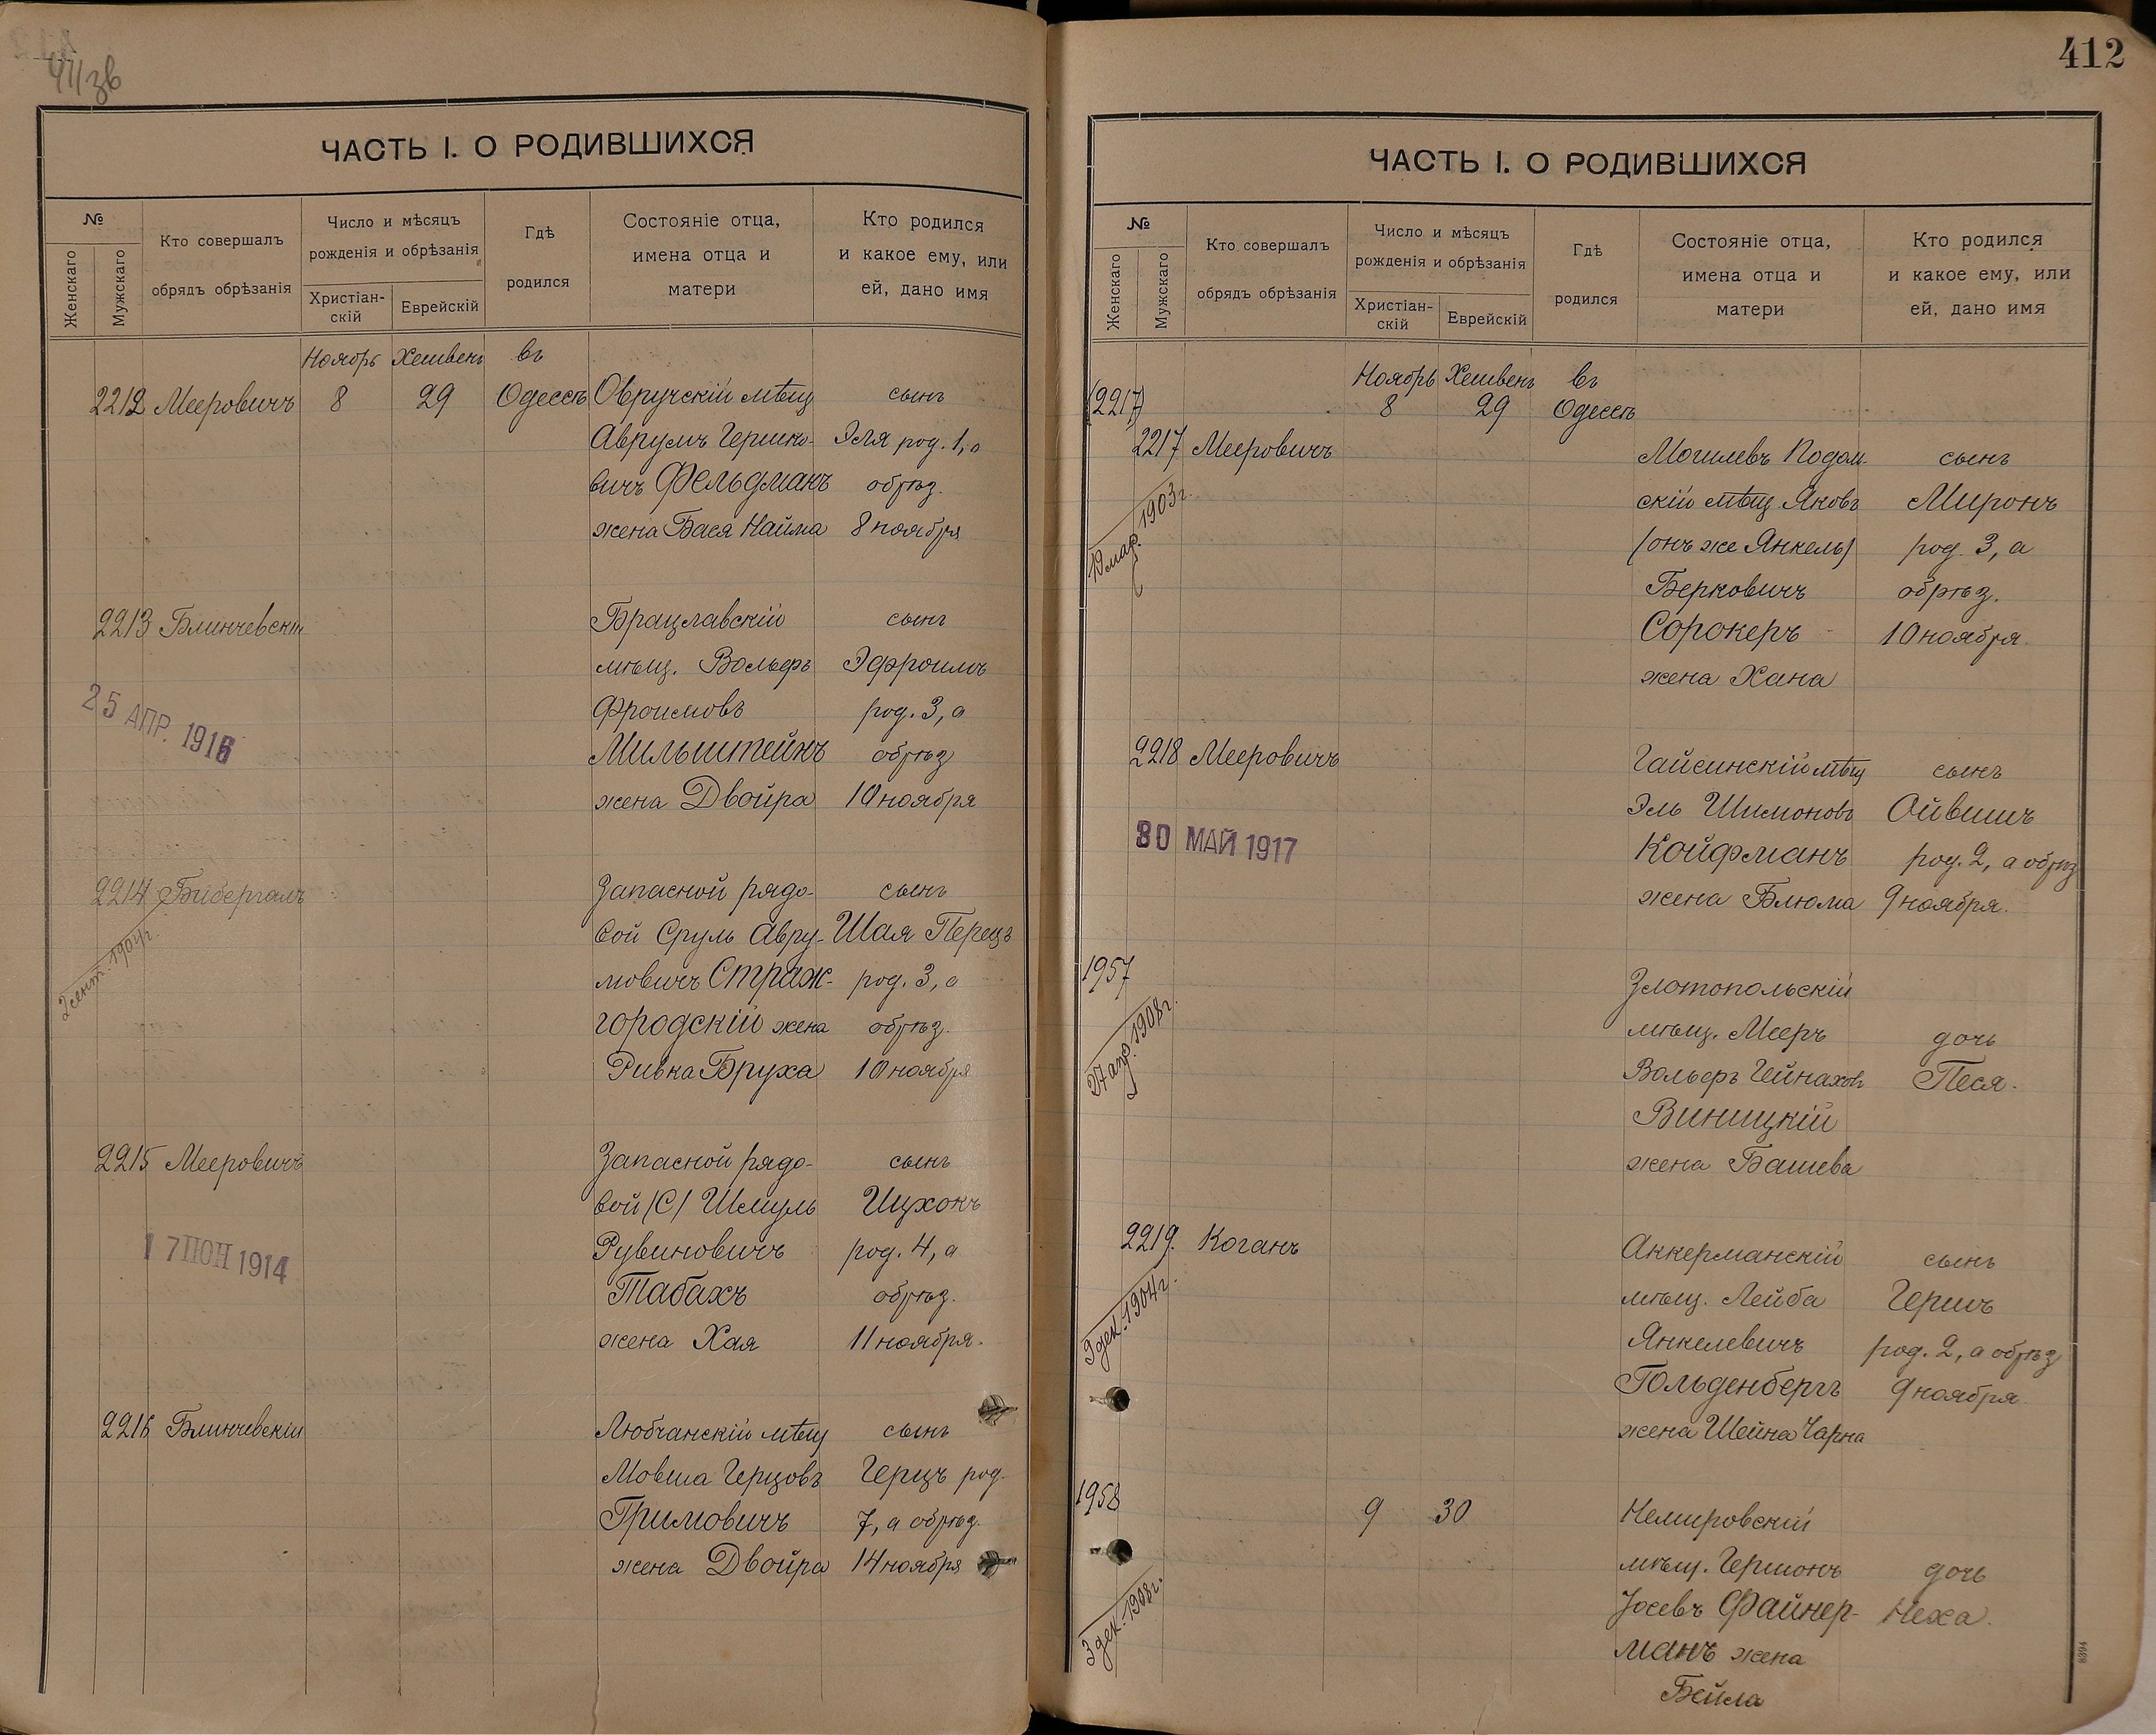 411 зв
ЧАСТЬ I. О РОДИВШИХСЯ
№
Женскаго
Мужскаго
Кто совершалъ
обрядъ обрѣзанія
Число и мѣсяцъ
рожденія и обрѣзанія
Христіан-
скій
Еврейскій
Гдѣ
родился
Состояніе отца,
имена отца и
матери
Кто родился
и какое ему, или
ей, дано имя
Ноябрь Хешвенъ въ
2212 Мееровичъ 8 29 Одессѣ Овручскій мѣщ сынъ
Аврумъ Гершко- Эля род. 1, а
вичъ Фельдманъ обрѣз.
жена Бася Найма 8 ноября
2213 Блинчевскій Брацлавскій сынъ
мѣщ. Вольфъ Эфроимъ
Фроимовъ род. 3, а
25 АПР. 1916
Мильштейнъ обрѣз
жена Двойра 10 ноября
2214 Бибергалъ Запасной рядо- сынъ
2 сент. 1904 г.
вой Сруль Авру- Шая Перецъ
мовичъ Страж- род. 3, а
городскій жена обрѣз.
Ривка Бруха 10 ноября
2215 Мееровичъ Запасной рядо- сынъ
вой (С) Шмуль Ицхокъ
Рувиновичъ род. 4, а
17 ІЮН 1914
Табахъ обрѣз.
жена Хая 11 ноября.
2216 Блинчевскій Любчанскій мѣщ сынъ
Мовша Герцовъ Герцъ род.
Гримовичъ 7, а обрѣз.
жена Двойра 14 ноября
412
ЧАСТЬ I. О РОДИВШИХСЯ
№
Женскаго
Мужскаго
Кто совершалъ
обрядъ обрѣзанія
Число и мѣсяцъ
рожденія и обрѣзанія
Христіан-
скій
Еврейскій
Гдѣ
родился
Состояніе отца,
имена отца и
матери
Кто родился
и какое ему, или
ей, дано имя
Ноябрь Хешвенъ въ
(2217) 8 29 Одессѣ
2217 Мееровичъ Могилевъ Подол- сынъ
19 мар. 1903 г.
скій мѣщ Яковъ Миронъ
(онъ же Янкель) род. 3, а
Берковичъ обрѣз.
Сорокеръ 10 ноября.
жена Хана
2218 Мееровичъ Гайсинскій мѣщ сынъ
Эль Шимоновъ Ойвшиъ
30 МАЙ 1917
Койфманъ род. 2, а обрѣз
жена Блюма 9 ноября.
1957 Злотопольскій
27 апр. 1908 г.
мѣщ. Мееръ дочь
Вольфъ Гейнаховъ Песя.
Виницкій
жена Башева
2219. Коганъ Аккерманскій сынъ
9 дек. 1904 г.
мѣщ. Лейба Гершъ
Янкелевичъ род. 2, а обрѣз
Гольденбергъ 9 ноября
жена Шейна Чарна
1958 9 30 Немировскій
3 дек. 1908 г.
мѣщ. Гершонъ дочь
Іосевъ Файнер- Неха.
манъ жена
Бейла